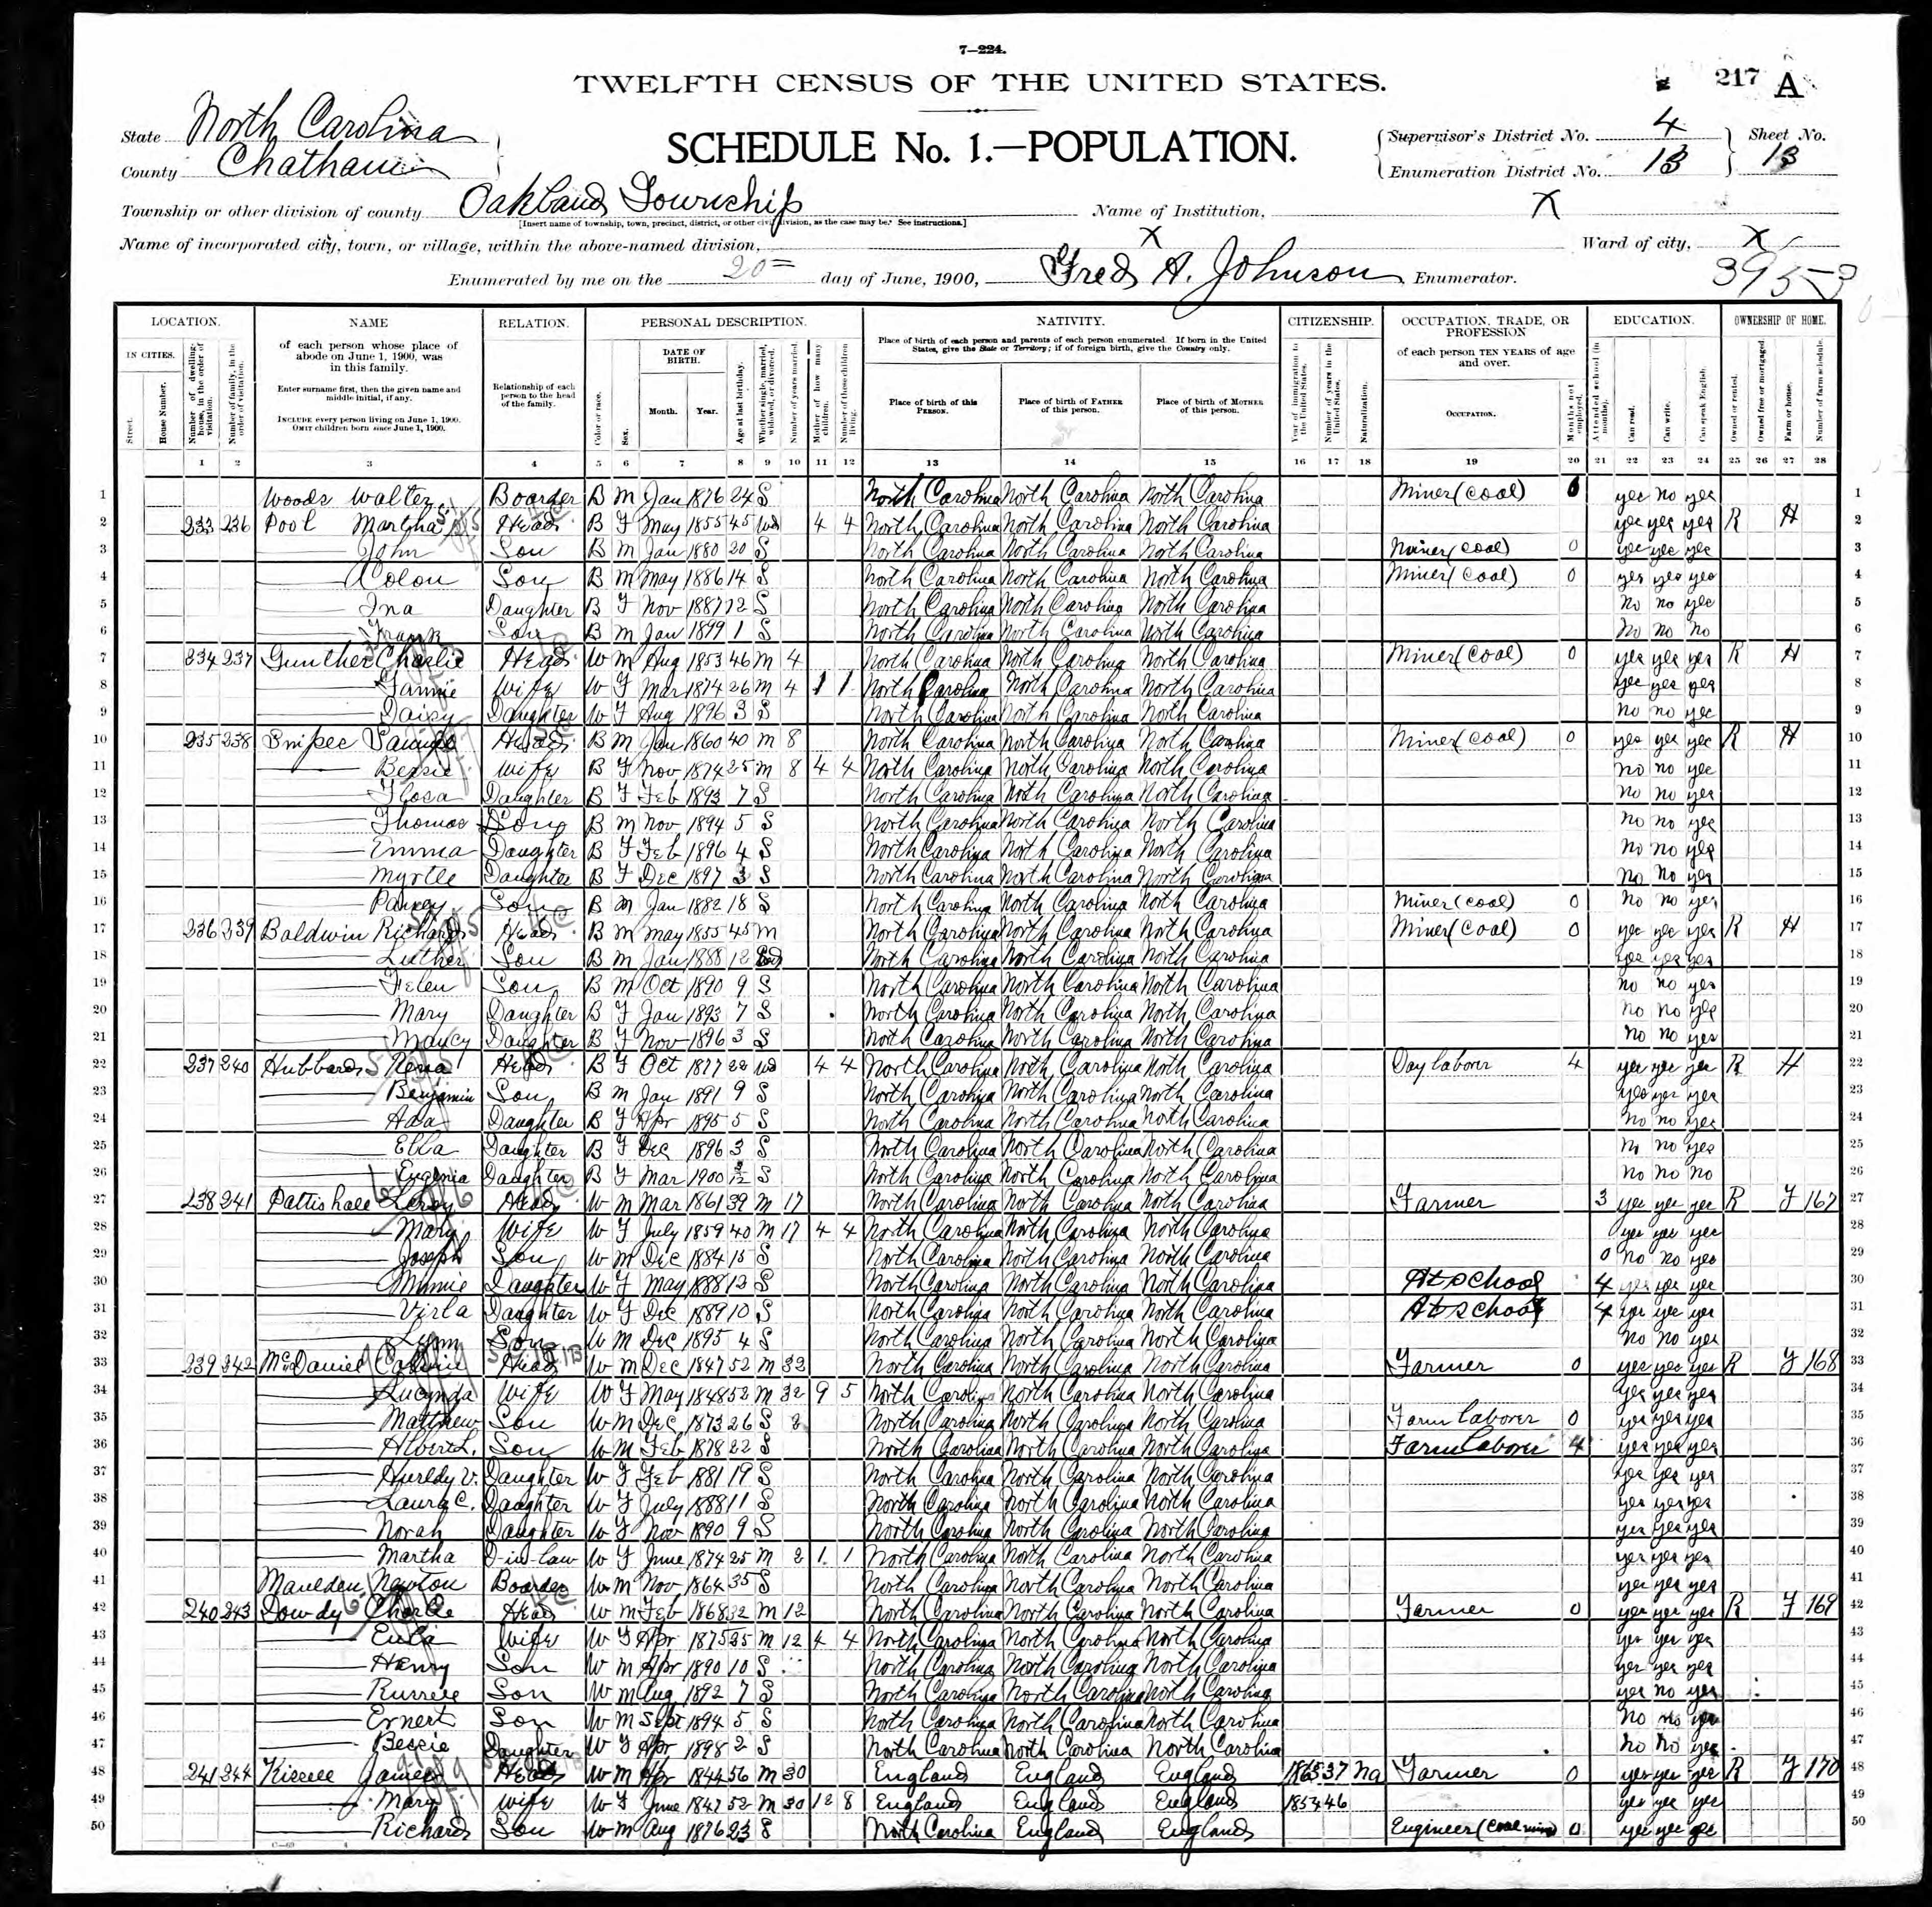 7—224.
217 A
TWELFTH CENSUS OF THE UNITED STATES.
State North Carolina
County Chatham
SCHEDULE No. 1.—POPULATION.
Supervisor's District No. 4
Enumeration District No. 13
Sheet No. 13
Township or other division of county Oakland Township
[Insert name of township, town, precinct, district, or other civil division, as the case may be. See instructions.]
Name of Institution, X
Name of incorporated city, town, or village, within the above-named division, X
Ward of city, X
Enumerated by me on the 20 day of June, 1900, Fred A. Johnson, Enumerator.
LOCATION. NAME RELATION. PERSONAL DESCRIPTION. NATIVITY. CITIZENSHIP. OCCUPATION, TRADE, OR PROFESSION EDUCATION. OWNERSHIP OF HOME.
IN CITIES.
Street.
House Number.
Number of dwelling-house, in the order of visitation.
Number of family, in the order of visitation.
of each person whose place of abode on June 1, 1900, was in this family.
Enter surname first, then the given name and middle initial, if any.
INCLUDE every person living on June 1, 1900.
OMIT children born since June 1, 1900.
Relationship of each person to the head of the family.
Color or race.
Sex.
DATE OF BIRTH.
Month. Year.
Age at last birthday.
Whether single, married, widowed, or divorced.
Number of years married.
Mother of how many children.
Number of these children living.
Place of birth of each person and parents of each person enumerated. If born in the United States, give the State or Territory; if of foreign birth, give the Country only.
Place of birth of this PERSON.
Place of birth of FATHER of this person.
Place of birth of MOTHER of this person.
Year of immigration to the United States.
Number of years in the United States.
Naturalization.
of each person TEN YEARS of age and over.
OCCUPATION.
Months not employed.
Attended school (in months).
Can read.
Can write.
Can speak English.
Owned or rented.
Owned free or mortgaged.
Farm or house.
Number of farm schedule.
1 2 3 4 5 6 7 8 9 10 11 12 13 14 15 16 17 18 19 20 21 22 23 24 25 26 27 28
1 Woods Walter Boarder B M Jan 1876 24 S North Carolina North Carolina North Carolina Miner (coal) 6 yes no yes 1
2 233 236 Pool Martha Head B F May 1855 45 Wd 4 4 North Carolina North Carolina North Carolina yes yes yes R H 2
3 John Son B M Jan 1880 20 S North Carolina North Carolina North Carolina Miner (coal) 0 yes yes yes 3
4 Colon Son B M May 1886 14 S North Carolina North Carolina North Carolina Miner (coal) 0 yes yes yes 4
5 Ina Daughter B F Nov 1887 12 S North Carolina North Carolina North Carolina No no yes 5
6 Frank Son B M Jan 1899 1 S North Carolina North Carolina North Carolina No no no 6
7 234 237 Gunther Charlie Head W M Aug 1853 46 M 4 North Carolina North Carolina North Carolina Miner (coal) 0 yes yes yes R H 7
8 Fannie Wife W F Mar 1874 26 M 4 1 1 North Carolina North Carolina North Carolina yes yes yes 8
9 Daisy Daughter W F Aug 1896 3 S North Carolina North Carolina North Carolina no no yes 9
10 235 238 Snipec Head B M Jan 1860 40 M 8 North Carolina North Carolina North Carolina Miner (coal) 0 yes yes yes R H 10
11 Bessie Wife B F Nov 1874 25 M 8 4 4 North Carolina North Carolina North Carolina no no yes 11
12 Flosa Daughter B F Feb 1893 7 S North Carolina North Carolina North Carolina no no yes 12
13 Thomas Son B M Nov 1894 5 S North Carolina North Carolina North Carolina no no yes 13
14 Emma Daughter B F Feb 1896 4 S North Carolina North Carolina North Carolina no no yes 14
15 Myrtle Daughter B F Dec 1897 3 S North Carolina North Carolina North Carolina no no yes 15
16 Son B M Jan 1882 18 S North Carolina North Carolina North Carolina Miner (coal) 0 no no yes 16
17 236 239 Baldwin Richard Head B M May 1855 45 M North Carolina North Carolina North Carolina Miner (coal) 0 yes yes yes R H 17
18 Luther Son B M Jan 1888 12 North Carolina North Carolina North Carolina yes yes yes 18
19 Felen Son B M Oct 1890 9 S North Carolina North Carolina North Carolina no no yes 19
20 Mary Daughter B F Jan 1893 7 S North Carolina North Carolina North Carolina no no yes 20
21 Maucy Daughter B F Nov 1896 3 S North Carolina North Carolina North Carolina no no yes 21
22 237 240 Hubbard Nena Head B F Oct 1877 22 Wd 4 4 North Carolina North Carolina North Carolina Day laborer 4 yes yes yes R H 22
23 Benjamin Son B M Jan 1891 9 S North Carolina North Carolina North Carolina yes yes yes 23
24 Ada Daughter B F Apr 1895 5 S North Carolina North Carolina North Carolina No no yes 24
25 Ella Daughter B F Dec 1896 3 S North Carolina North Carolina North Carolina No no yes 25
26 Eugenia Daughter B F Mar 1900 3/12 S North Carolina North Carolina North Carolina No no no 26
27 238 241 Pattishall Leroy Head W M Mar 1861 39 M 17 North Carolina North Carolina North Carolina Farmer 3 yes yes yes R F 167 27
28 Mary Wife W F July 1859 40 M 17 4 4 North Carolina North Carolina North Carolina 0 yes yes yes 28
29 Joseph Son W M Dec 1884 15 S North Carolina North Carolina North Carolina 0 no no yes 29
30 Minnie Daughter W F May 1888 12 S North Carolina North Carolina North Carolina At school 4 yes yes yes 30
31 Virla Daughter W F Dec 1889 10 S North Carolina North Carolina North Carolina At school 4 yes yes yes 31
32 Lynn Son W M Dec 1895 4 S North Carolina North Carolina North Carolina No no yes 32
33 239 242 McDaniel Calvin Head W M Dec 1847 52 M 32 North Carolina North Carolina North Carolina Farmer 0 yes yes yes R F 168 33
34 Lucynda Wife W F May 1848 52 M 32 9 5 North Carolina North Carolina North Carolina yes yes yes 34
35 Matthew Son W M Dec 1873 26 S 2 North Carolina North Carolina North Carolina Farm laborer 0 yes yes yes 35
36 Albert L. Son W M Feb 1878 22 S North Carolina North Carolina North Carolina Farm laborer 4 yes yes yes 36
37 Hureldy V. Daughter W F Feb 1881 19 S North Carolina North Carolina North Carolina yes yes yes 37
38 Laura C. Daughter W F July 1888 11 S North Carolina North Carolina North Carolina yes yes yes 38
39 Norah Daughter W F Nov 1890 9 S North Carolina North Carolina North Carolina yes yes yes 39
40 Martha D-in-law W F June 1874 25 M 2 1 1 North Carolina North Carolina North Carolina yes yes yes 40
41 Maulden Newton Boarder W M Nov 1864 35 S North Carolina North Carolina North Carolina yes yes yes 41
42 240 243 Dowdy Charlie Head W M Feb 1868 32 M 12 North Carolina North Carolina North Carolina Farmer 0 yes yes yes R F 169 42
43 Eula Wife W F Apr 1875 25 M 12 4 4 North Carolina North Carolina North Carolina yes yes yes 43
44 Henry Son W M Apr 1890 10 S North Carolina North Carolina North Carolina yes yes yes 44
45 Russell Son W M Aug 1892 7 S North Carolina North Carolina North Carolina yes no yes 45
46 Ernest Son W M Sept 1894 5 S North Carolina North Carolina North Carolina No no yes 46
47 Bessie Daughter W F Apr 1898 2 S North Carolina North Carolina North Carolina No No yes 47
48 241 244 Kissell James Head W M Apr 1844 56 M 30 England England England 37 Na Farmer 0 yes yes yes R F 170 48
49 Mary Wife W F June 1847 52 M 30 12 8 England England England 1853 46 yes yes yes 49
50 Richard Son W M Aug 1876 23 S North Carolina England England Engineer (coal mine) 0 yes yes yes 50